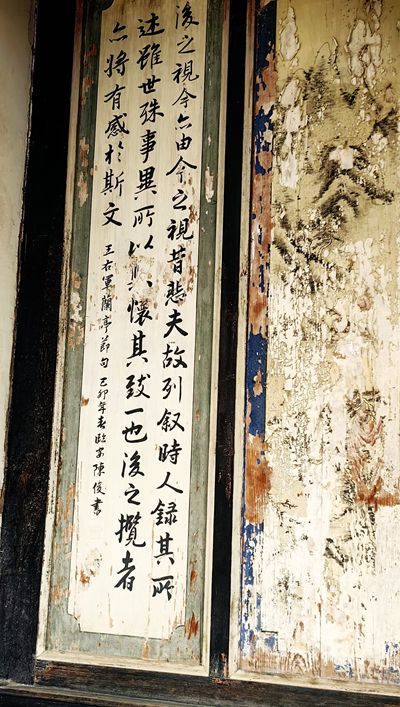 後之視今亦由今之視昔悲夫故列叙時人録其所
述雖世殊事異所以興懷其致一也後之攬者
亦將有感於斯文
王右軍蘭亭節句 己卯年春 陳俊書